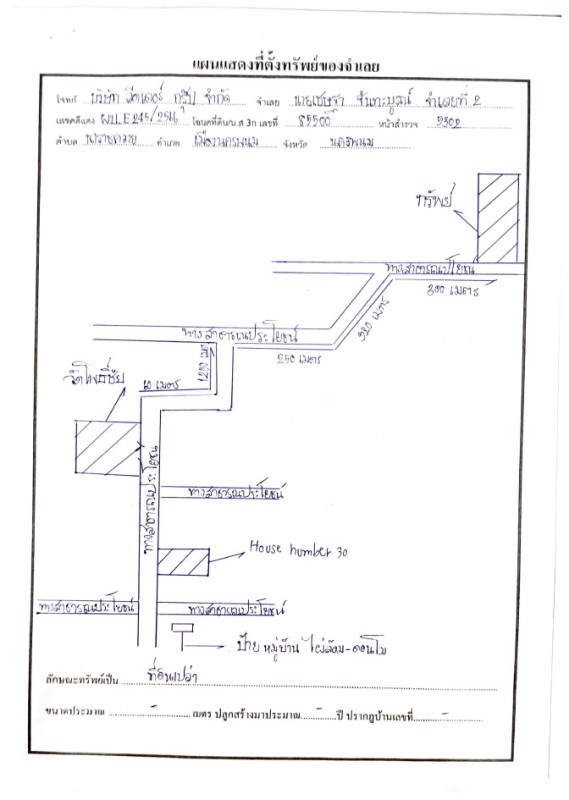 แผนแสดงที่ตั้งทรัพย์ของจำเลย
โจทก์ บริษัท ลีดเดอร์ กรุ๊ป จำกัด จำเลย นายเชษฐา จันทะบูรณ์ จำเลยที่ 2
เลขคดีแดง ผบ.E 245/2564 โฉนดที่ดิน/น.ส.3ก เลขที่ 85500 หน้าสำรวจ 9302
ตำบล อำเภอ เมืองนครพนม จังหวัด นครพนม
ทรัพย์
ทางสาธารณประโยชน์
300 เมตร
520 เมตร
ทางสาธารณประโยชน์
250 เมตร
1200 เมตร
วัดโพธิ์ชัย
10 เมตร
ทางสาธารณประโยชน์
ทางสาธารณประโยชน์
House number 30
ทางสาธารณประโยชน์ ทางสาธารณประโยชน์
ป้าย หมู่บ้าน ไผ่ล้อม-ดอนโม
ลักษณะทรัพย์เป็น ที่ดินเปล่า
ขนาดประมาณ - เมตร ปลูกสร้างมาประมาณ - ปี ปรากฏบ้านเลขที่ -